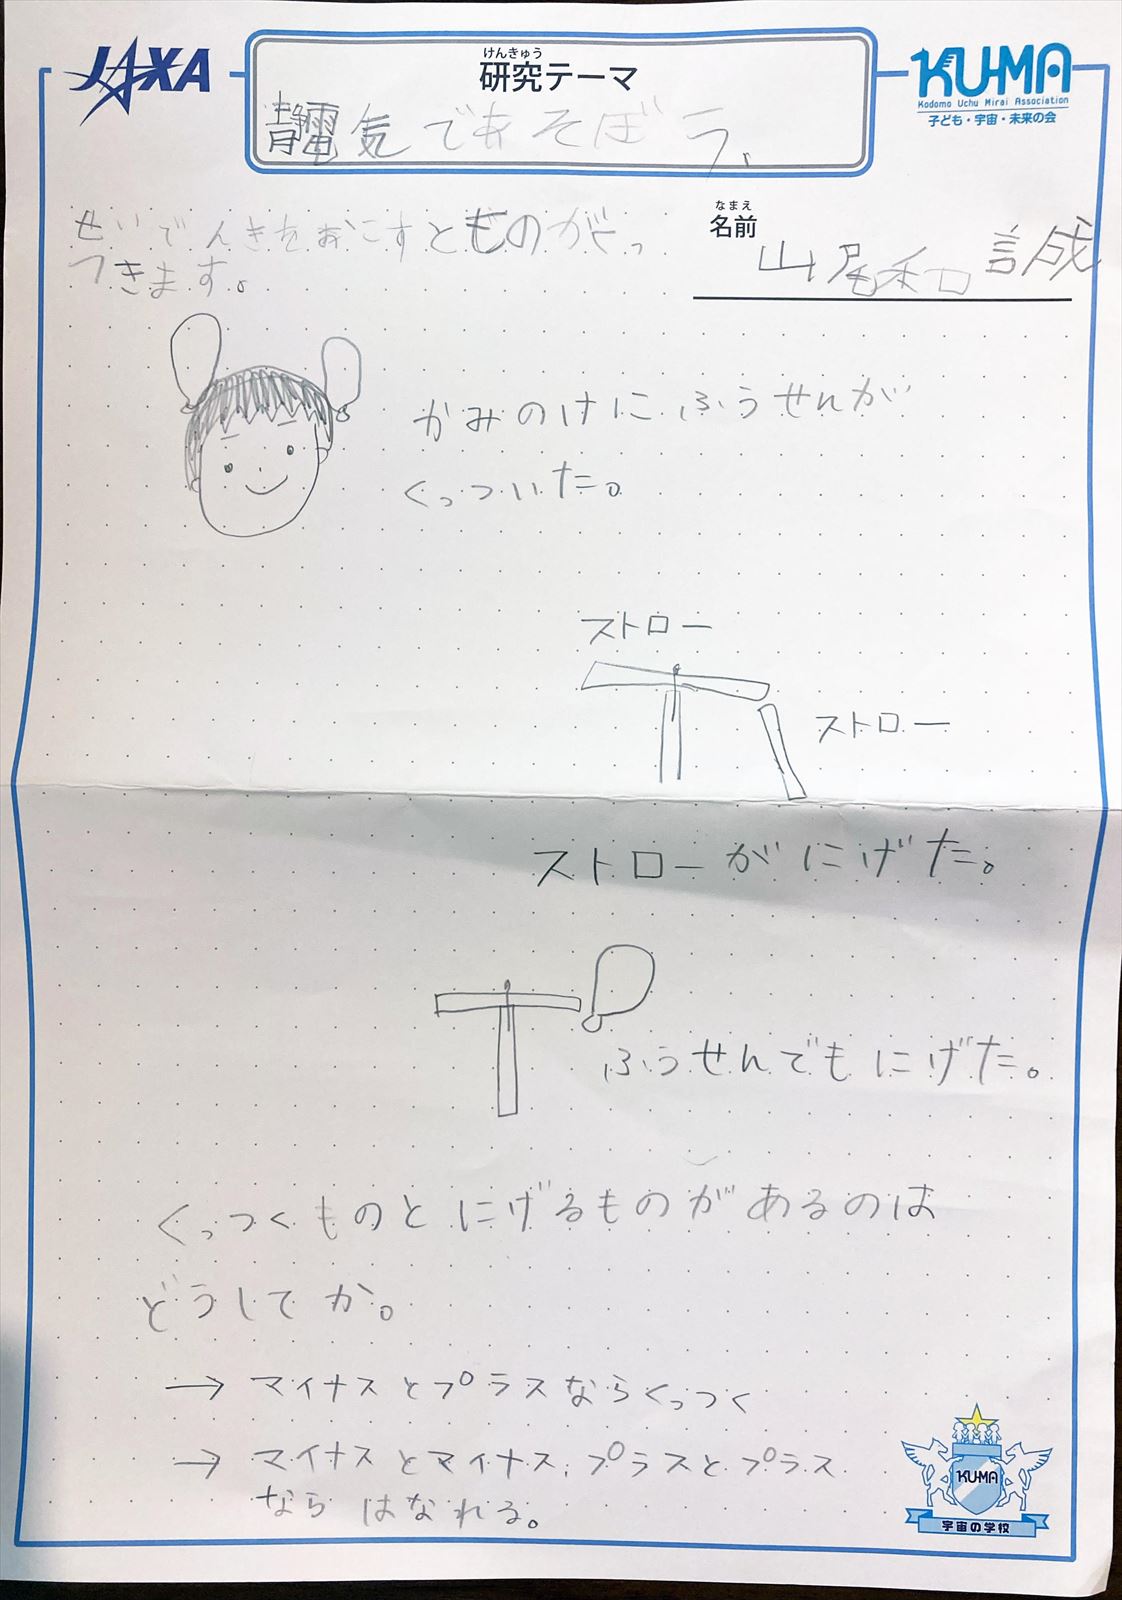 JAXA
けんきゅう
研究テーマ
KU-MA
Kodomo Uchu Mirai Association
子ども・宇宙・未来の会
静電気であそぼう、
なまえ
名前
山尾和誠
せいでんきをおこすとものがくっ
つきます。
かみのけにふうせんが
くっついた。
ストロー
ストロー
ストローがにげた。
ふうせんでもにげた。
くっつくものとにげるものがあるのは
どうしてか。
→ マイナスとプラスならくっつく
→ マイナスとマイナス、プラスとプラス
ならはなれる。
KU-MA
宇宙の学校